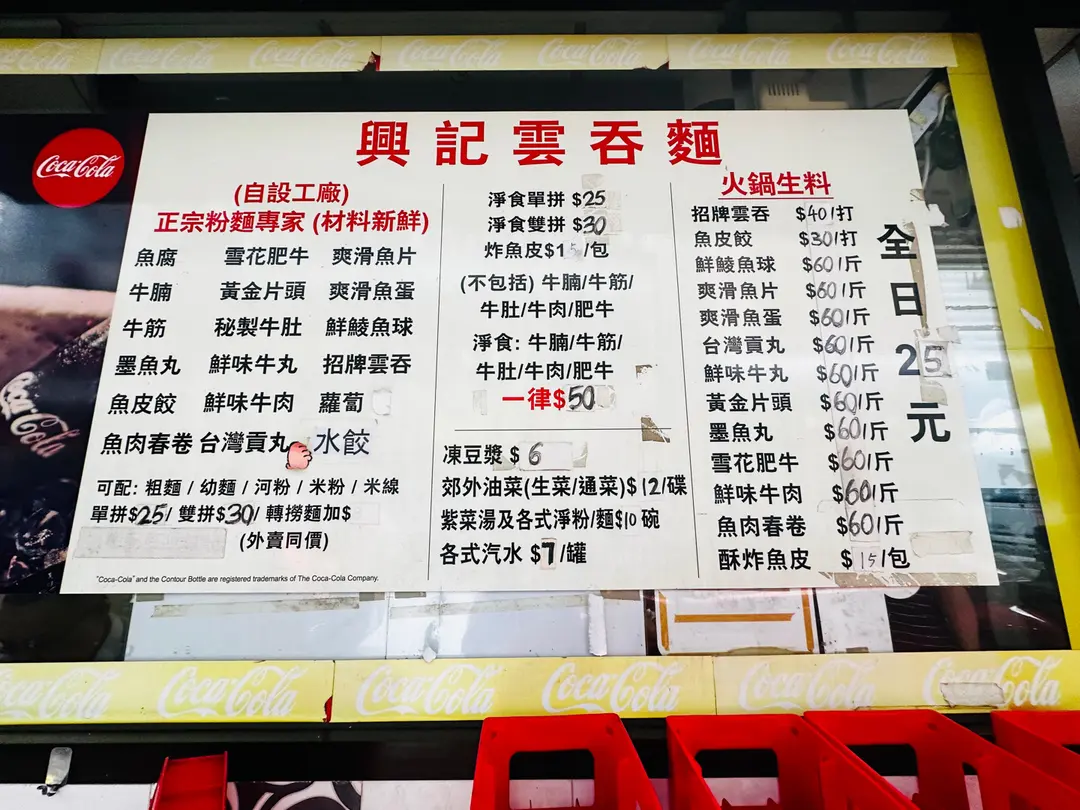 Coca-Cola Coca-Cola Coca-Cola Coca-Cola Coca-Cola Coca-Cola
Coca-Cola
Coca-Cola
興記雲吞麵
(自設工廠)
正宗粉麵專家 (材料新鮮)
魚腐 雪花肥牛 爽滑魚片
牛腩 黃金片頭 爽滑魚蛋
牛筋 秘製牛肚 鮮鯪魚球
墨魚丸 鮮味牛丸 招牌雲吞
魚皮餃 鮮味牛肉 蘿蔔
魚肉春卷 台灣貢丸 水餃
可配: 粗麵 / 幼麵 / 河粉 / 米粉 / 米線
單拼$25/ 雙拼$30/ 轉撈麵加$
(外賣同價)
"Coca-Cola" and the Contour Bottle are registered trademarks of The Coca-Cola Company.
淨食單拼 $25
淨食雙拼 $30
炸魚皮$15/包
(不包括) 牛腩/牛筋/
牛肚/牛肉/肥牛
淨食: 牛腩/牛筋/
牛肚/牛肉/肥牛
一律$50
凍豆漿 $6
郊外油菜(生菜/通菜)$12/碟
紫菜湯及各式淨粉/麵$10 碗
各式汽水 $7/罐
火鍋生料
招牌雲吞 $40/打
魚皮餃 $30/打
鮮鯪魚球 $60/斤
爽滑魚片 $60/斤
爽滑魚蛋 $60/斤
台灣貢丸 $60/斤
鮮味牛丸 $60/斤
黃金片頭 $60/斤
墨魚丸 $60/斤
雪花肥牛 $60/斤
鮮味牛肉 $60/斤
魚肉春卷 $60/斤
酥炸魚皮 $15/包
全日25元
Coca-Cola Coca-Cola Coca-Cola Coca-Cola Coca-Cola Coca-Cola